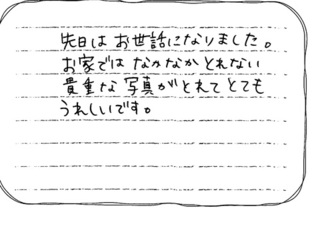 先日はお世話になりました。
お家ではなかなかとれない
貴重な写真がとれてとても
うれしいです。